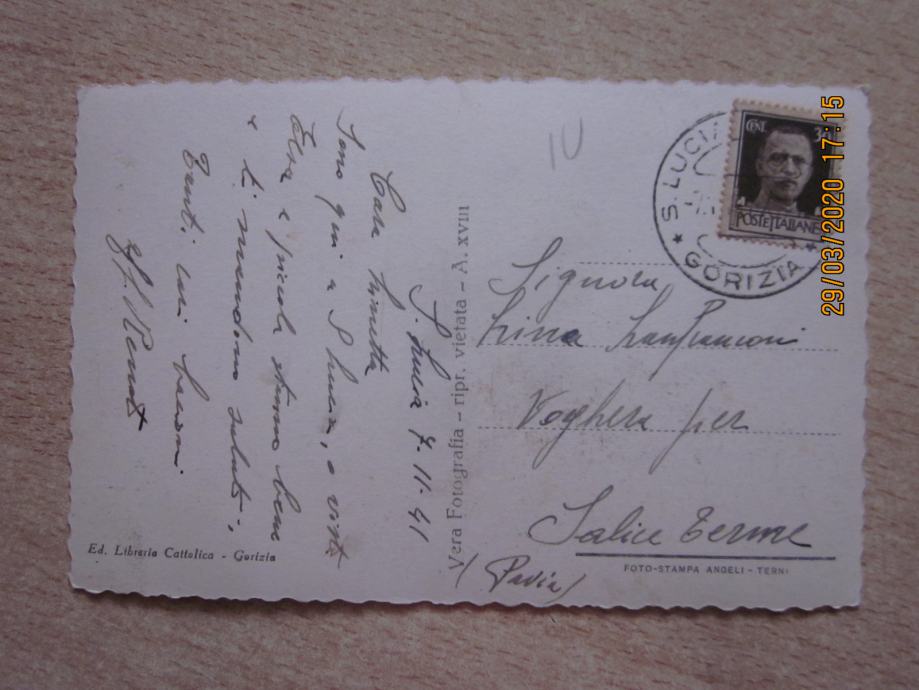 S. Lucia 7.11.41
Cara Linetta
Sono qui a S. Lucia, o visto
Elsa e piccola stanno bene
e ti mandono saluti,
Tanti cari baconi
Vera Fotografia - ripr. vietata - A. XVIII
Ed. Libreria Cattolica - Gorizia
10
S. LUCIA
GORIZIA
CENT. 30
POSTE ITALIANE
Signora
Lina Lanfranconi
Voghera per
Salice Terme
(Pavia)
FOTO-STAMPA ANGELI - TERNI
29/03/2020 17:15